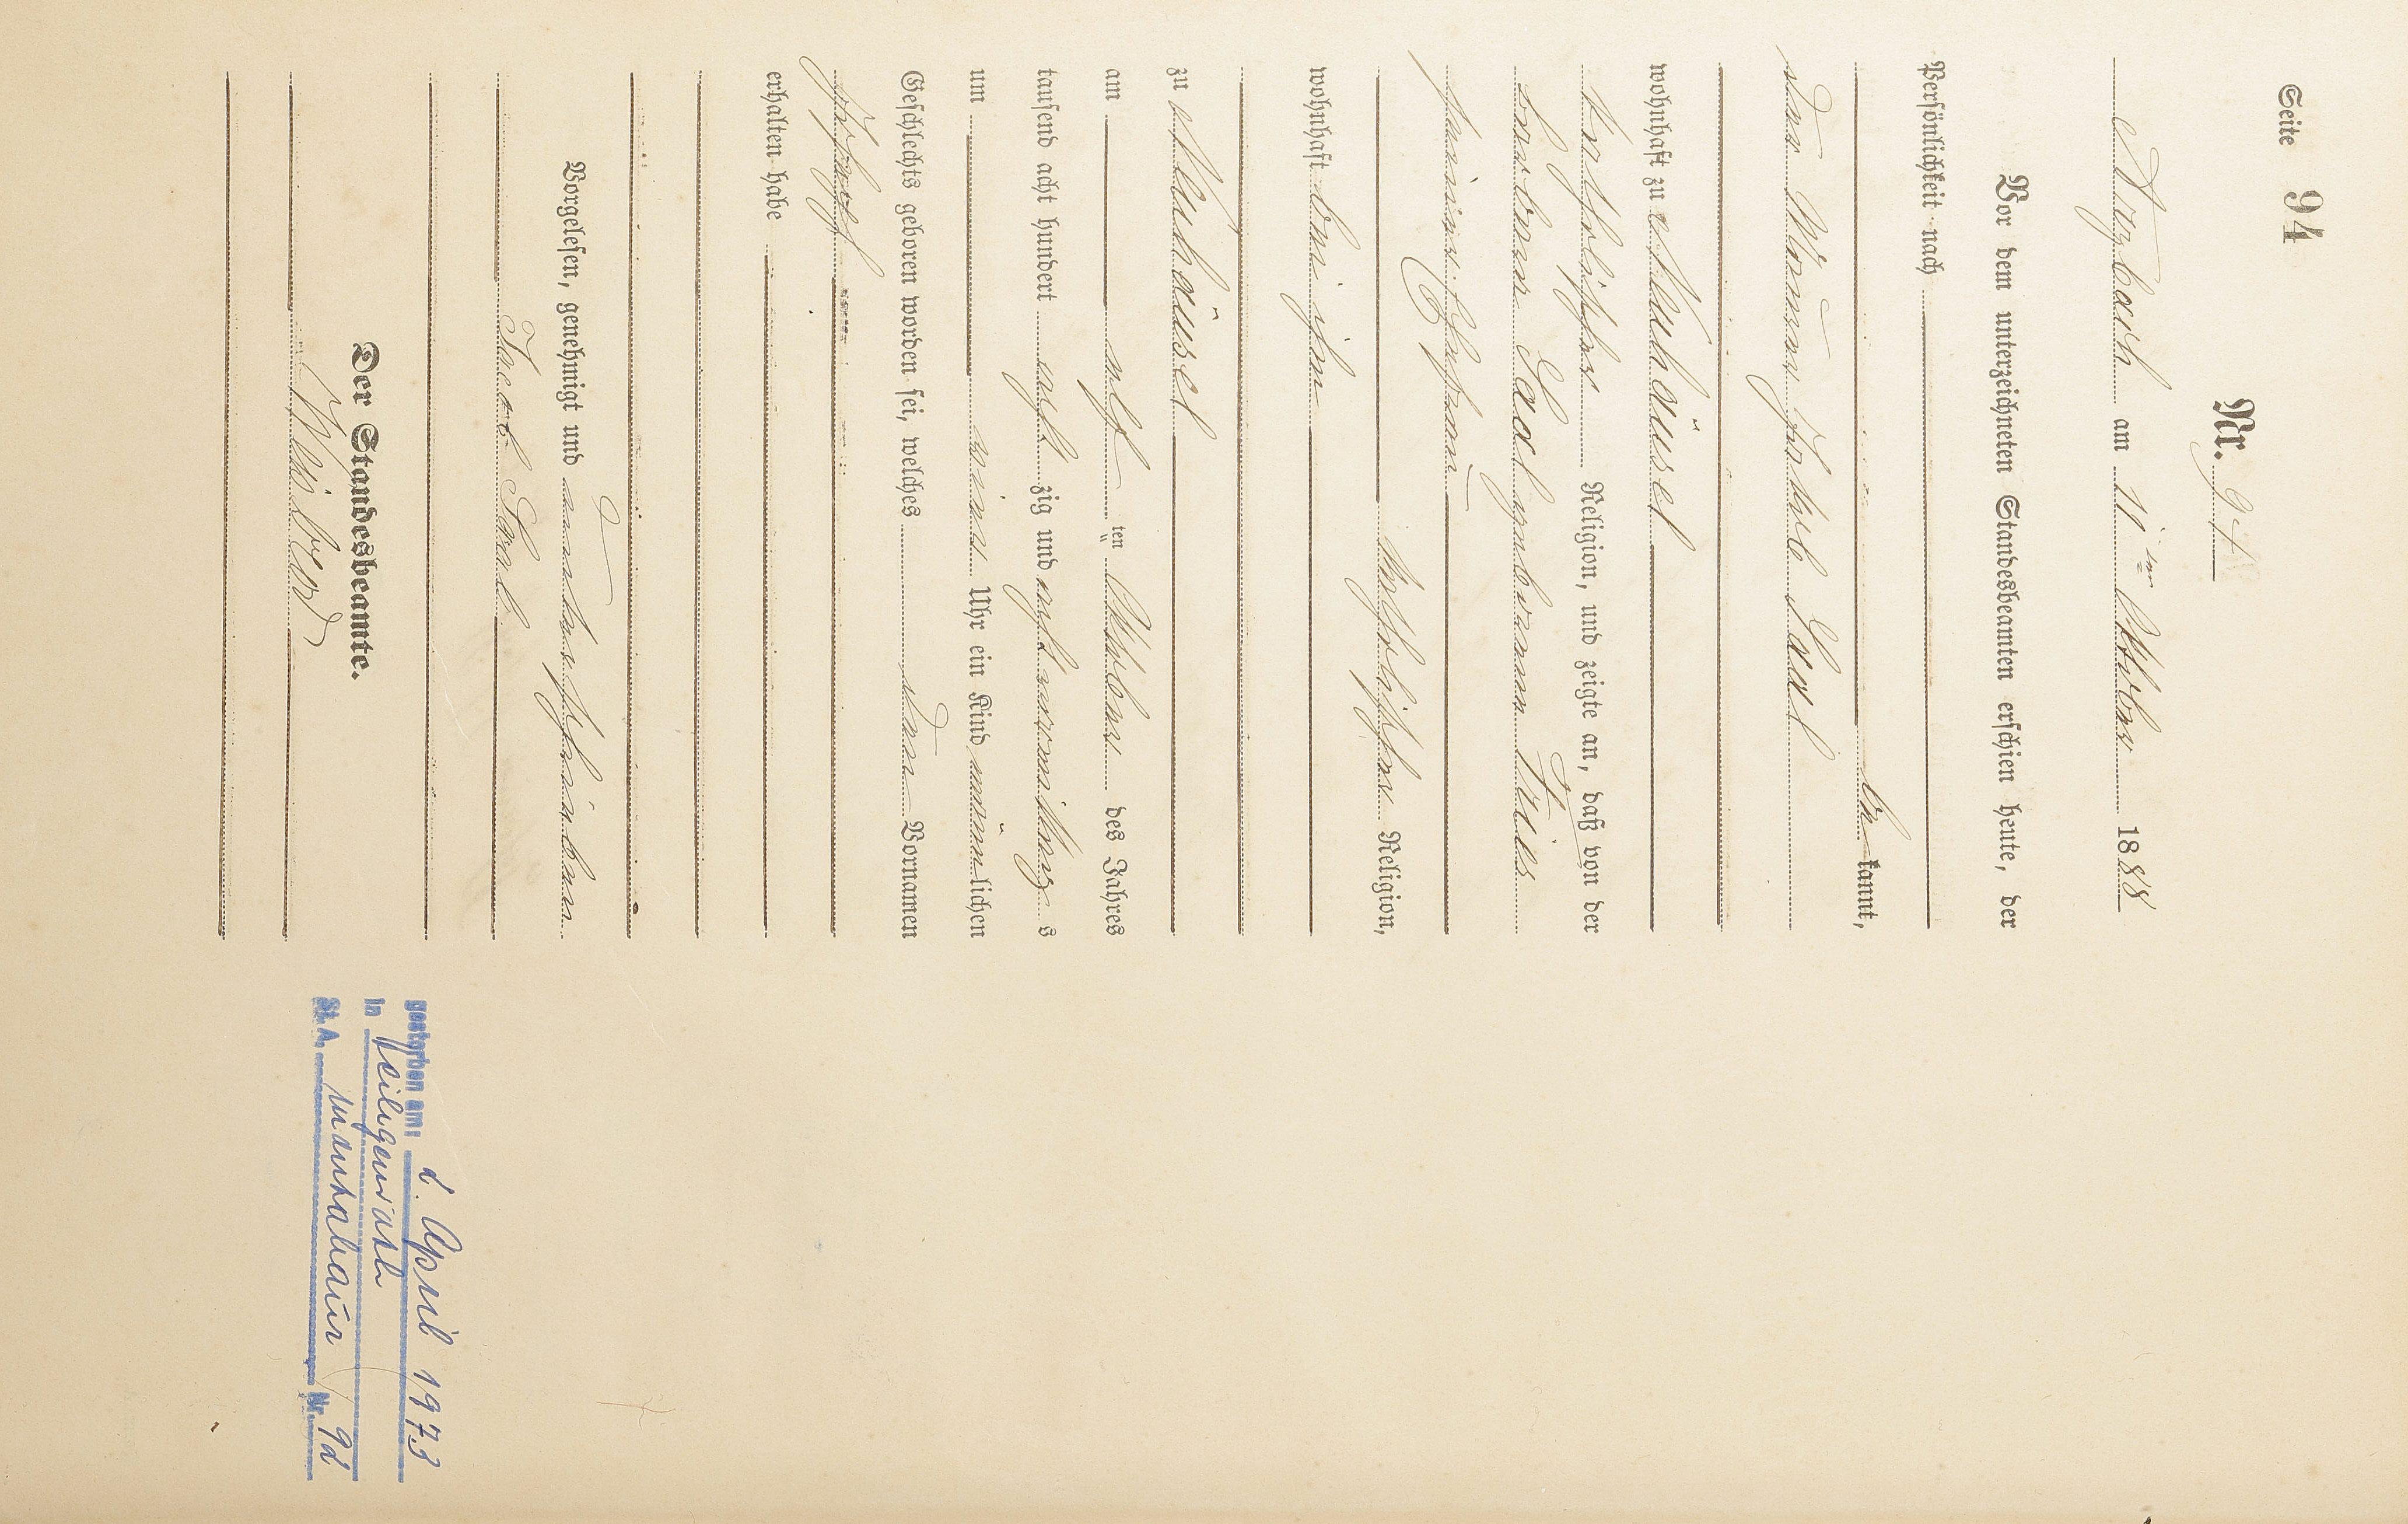 Seite 94
Nr. 94
Arzbach am 11ten Oktober 1888
Vor dem unterzeichneten Standesbeamten erschien heute, der
Persönlichkeit nach
bekannt,
der Maurer Jakob Saal
wohnhaft zu Neuhäusel
katholischer Religion, und zeigte an, daß von der
Barbara Saal geborenen Fries
seiner Ehefrau
katholischer Religion,
wohnhaft bei ihm
zu Neuhäusel
am elften Oktober des Jahres
tausend acht hundert acht zig und acht vormittags
um neun Uhr ein Kind männlichen
Geschlechts geboren worden sei, welches den Vornamen
Joseph
erhalten habe
Vorgelesen, genehmigt und unterschrieben
Jacob Saal
Der Standesbeamte.
gestorben am: 2. April 1973
in Heiligenroth
St. A. Montabaur Nr. 92